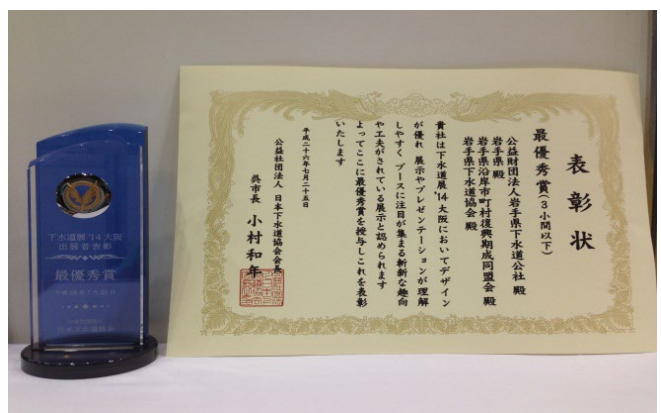 表彰状
最優秀賞(3小間以下)
公益財団法人岩手県下水道公社 殿
岩手県 殿
岩手県沿岸市町村復興期成同盟会 殿
岩手県下水道協会 殿
貴社は下水道展'14大阪においてデザイン
が優れ 展示やプレゼンテーションが理解
しやすく ブースに注目が集まる斬新な趣向
や工夫がされている展示と認められます
よってここに最優秀賞を授与しこれを表彰
いたします
平成二十六年七月二十五日
公益社団法人 日本下水道協会会長
呉市長 小村和年
下水道展'14大阪
出展者表彰
最優秀賞
平成26年7月25日
日本下水道協会